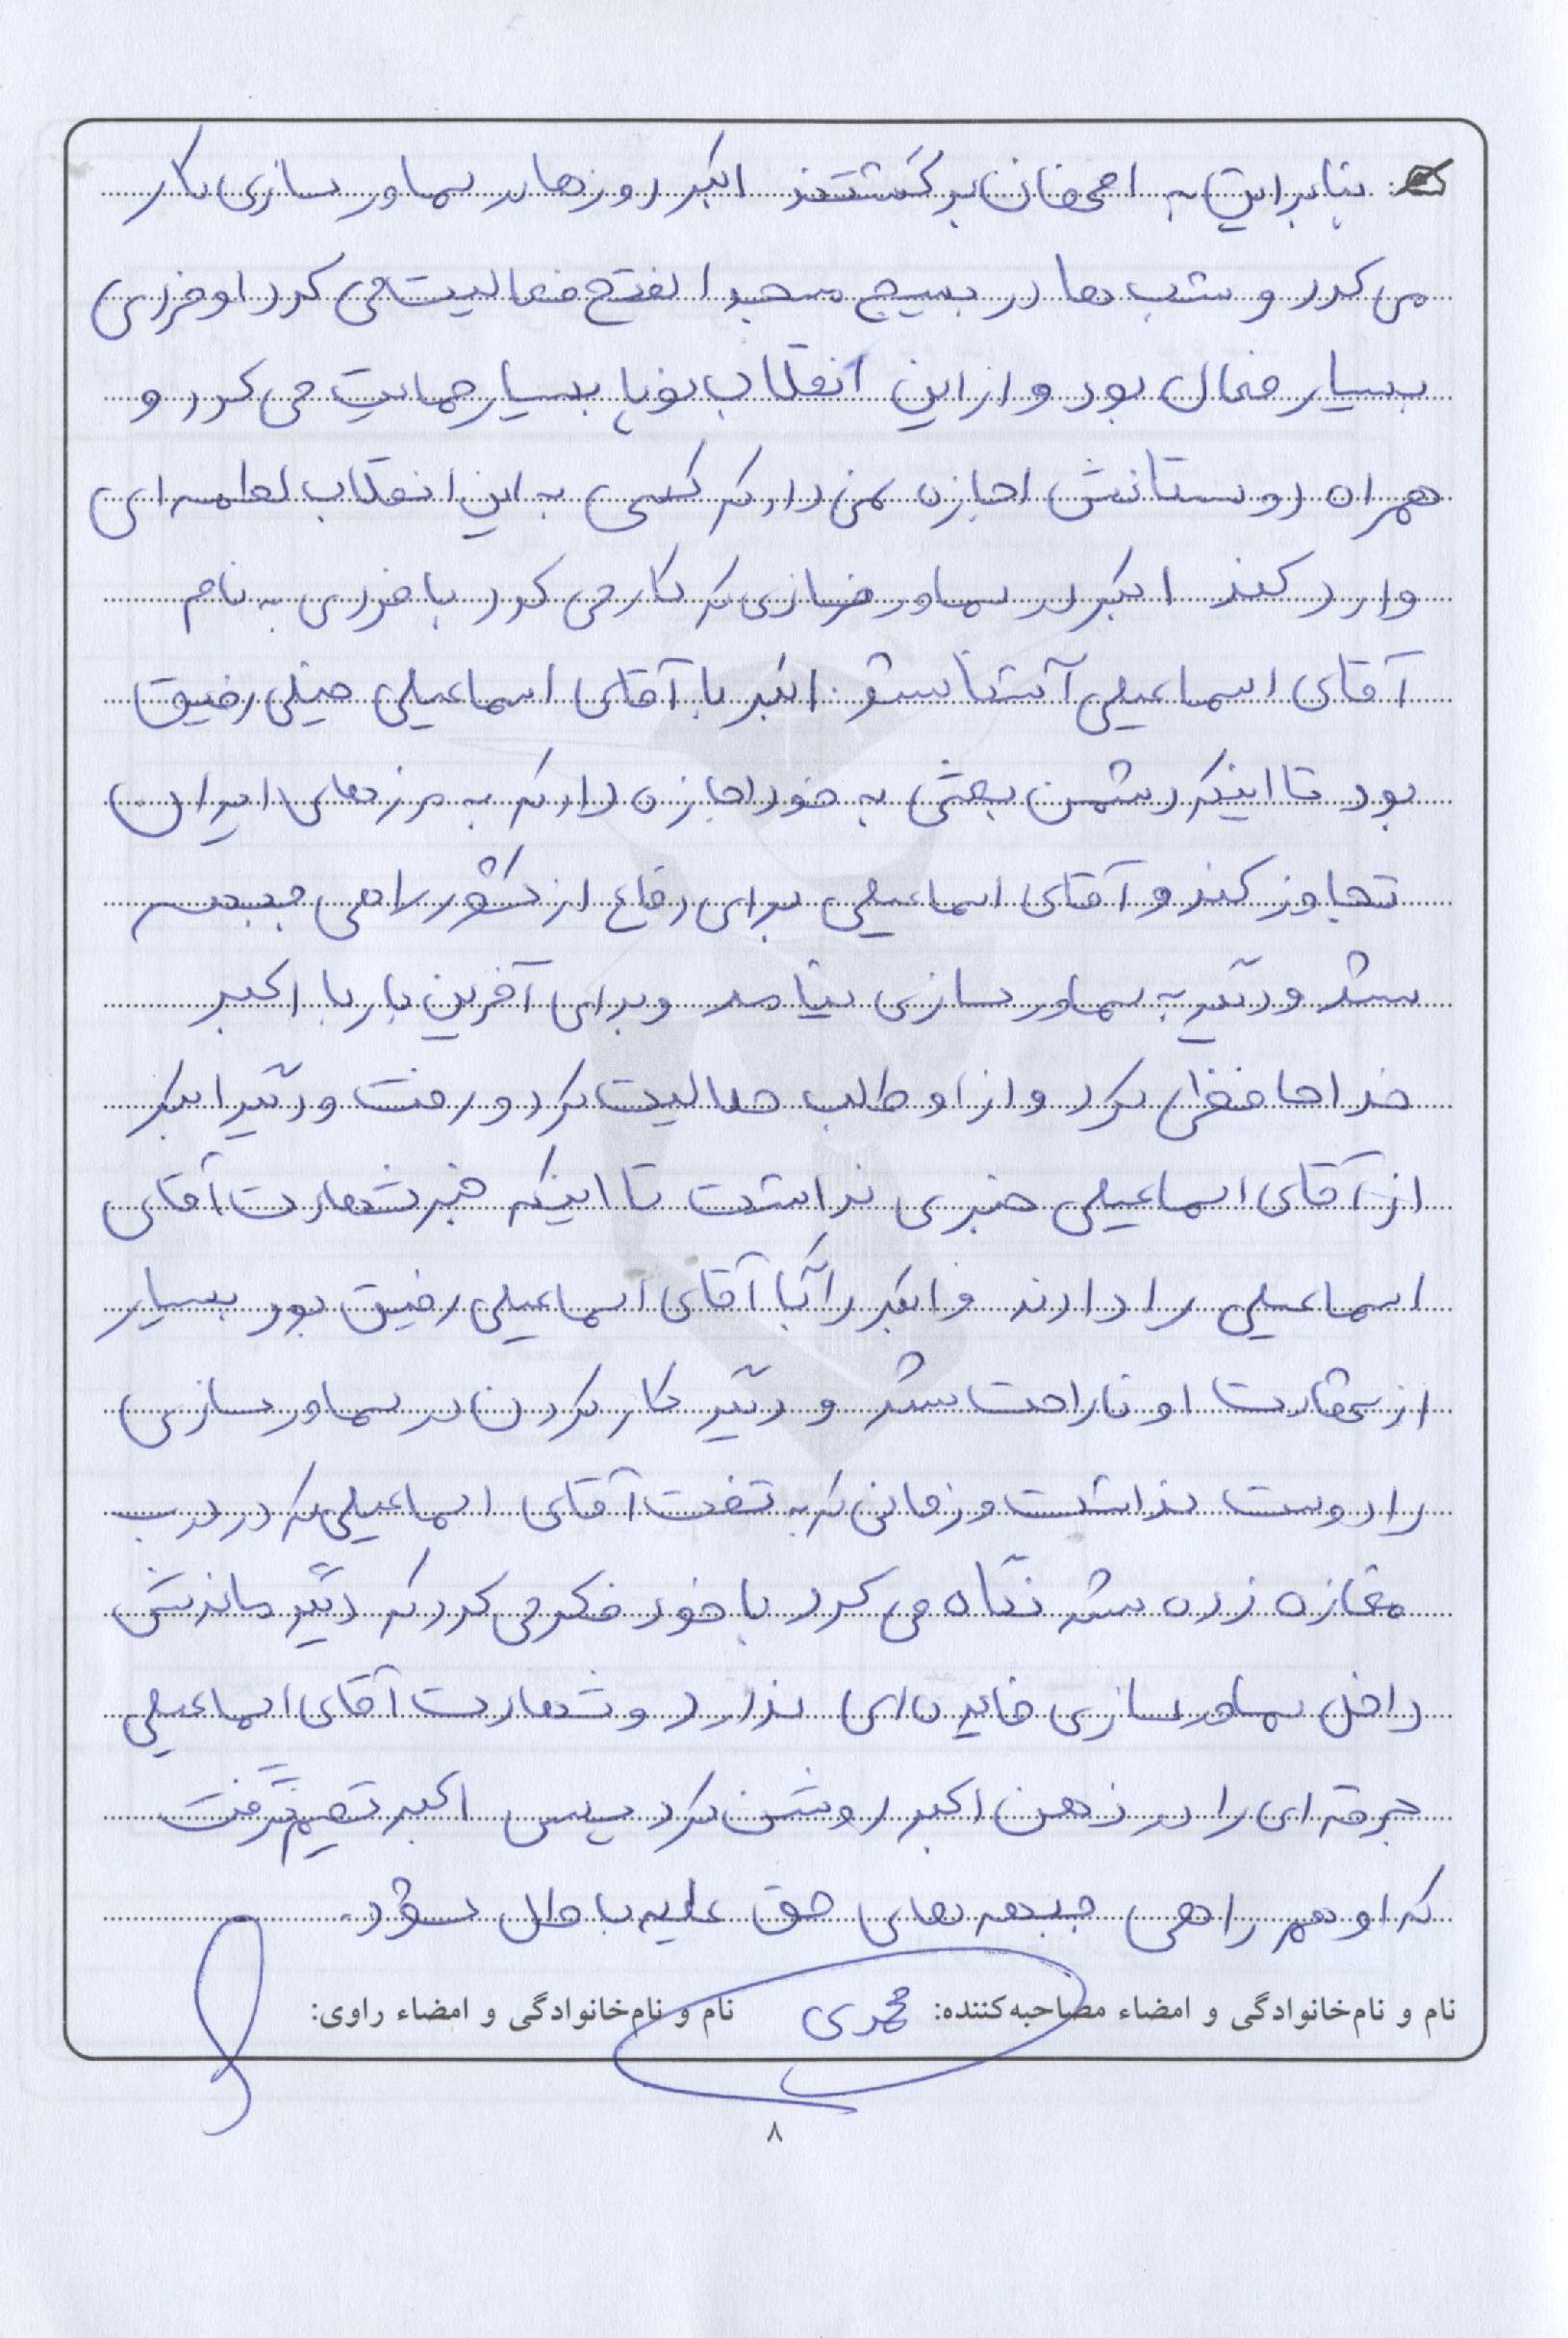 بنابراین به اصفهان برگشتند اکبر روزها در سماور سازی کار
می کرد و شب ها در بسیج مسجد الفتح فعالیت می کرد او فردی
بسیار فعال بود و از این انقلاب نوپا بسیار حمایت می کرد و
همراه دوستانش اجازه نمی داد که کسی به این انقلاب لطمه ای
وارد کند اکبر در سماور سازی که کار می کرد با فردی به نام
آقای اسماعیلی آشنا شد. اکبر با آقای اسماعیلی خیلی رفیق
بود تا اینکه دشمن بعثی به خود اجازه داد که به مرزهای ایران
تجاوز کند و آقای اسماعیلی برای دفاع از کشور راهی جبهه
شد و دیگر به سماور سازی نیامد و برای آخرین بار با اکبر
خداحافظی کرد و از او طلب حلالیت کرد و رفت و دیگر اکبر
از آقای اسماعیلی خبری نداشت تا اینکه خبر شهادت آقای
اسماعیلی را دادند و اکبر با آقای اسماعیلی رفیق بود بسیار
از شهادت او ناراحت شد و دیگر کار کردن در سماور سازی
را دوست نداشت و زمانی که به آقای اسماعیلی که در درب
مغازه زده شد نگاه می کرد با خود فکر می کرد که دیگر ماندنش
داخل سماور سازی فایده ای ندارد و شهادت آقای اسماعیلی
جرقه ای را در ذهن اکبر روشن کرد سپس اکبر تصمیم گرفت
که او هم راهی جبهه های حق علیه باطل شود.
نام و نام‌خانوادگی و امضاء مصاحبه‌کننده: محمدی نام و نام‌خانوادگی و امضاء راوی:
۸